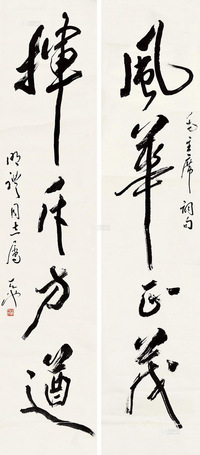 風華正茂
毛主席詞句
揮斥方遒
明礼同志属